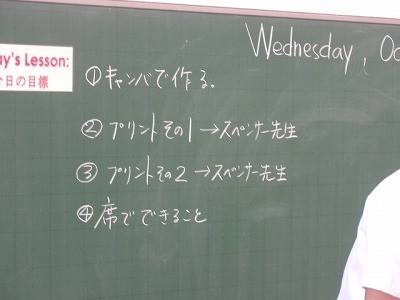 Wednesday, Oc
ay's Lesson:
今日の目標
①キャンバで作る。
②プリントその1→スペンサー先生
③プリントその2→スペンサー先生
④席でできること